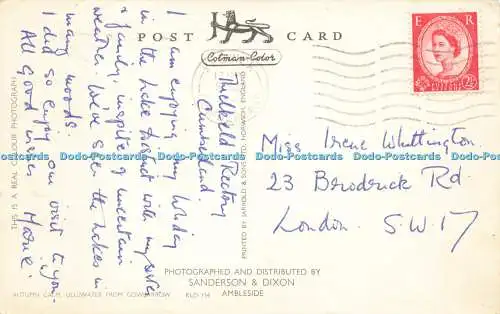 POST CARD
Cotman-Color
E R
2½D
Threlkeld Rectory
Cumberland.
I am enjoying my holiday
in the Lake District with my sister
& family, inspite of uncertain
weather. We've seen the Lakes in
many moods.
I did so enjoy our visit to you.
All Good wishes
Miss Irene Whittington
23 Broderick Rd.
London. S.W.17
THIS IS A REAL COLOUR PHOTOGRAPH
PRINTED BY JARROLD & SONS LTD. NORWICH, ENGLAND
PHOTOGRAPHED AND DISTRIBUTED BY
SANDERSON & DIXON
AMBLESIDE
AUTUMN CALM, ULLSWATER FROM GOWBARROW KLD 114
Dodo-Postcards Dodo-Postcards Dodo-Postcards Dodo-Postcards Dodo-Postcards Dodo-Postcards